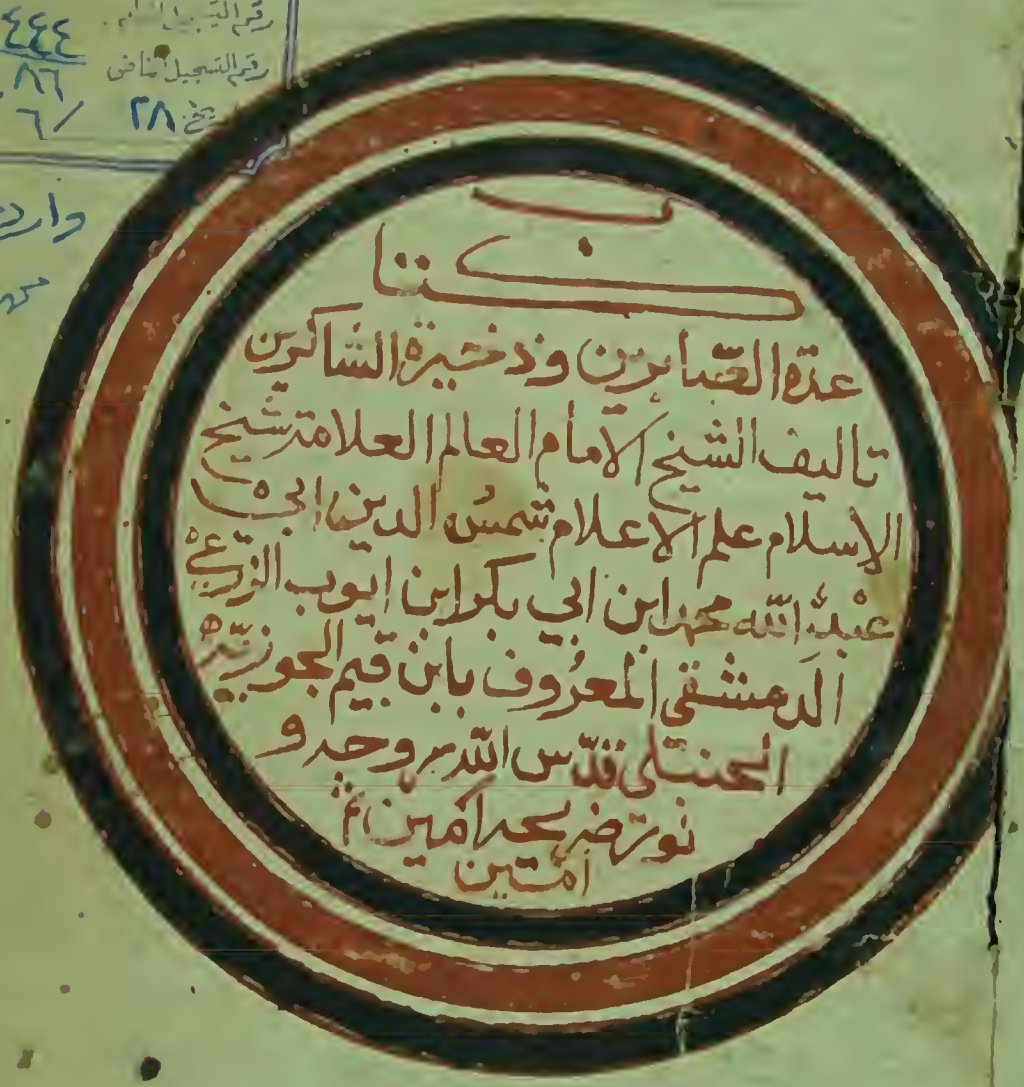 رقم التسجيل العام
٤٤٤
رقم التسجيل الخاص
٨٦
٢٨ /٦
وارد
كتاب
عدة الصابرين وذخيرة الشاكرين
تاليف الشيخ الامام العالم العلامة شيخ
الإسلام علم الاعلام شمس الدين ابي
عبد الله محمد ابن ابي بكر ابن ايوب الزرعي
الدمشقي المعروف بابن قيم الجوزية
الحنبلي قدس الله روحه و
نور ضريحه امين
امين